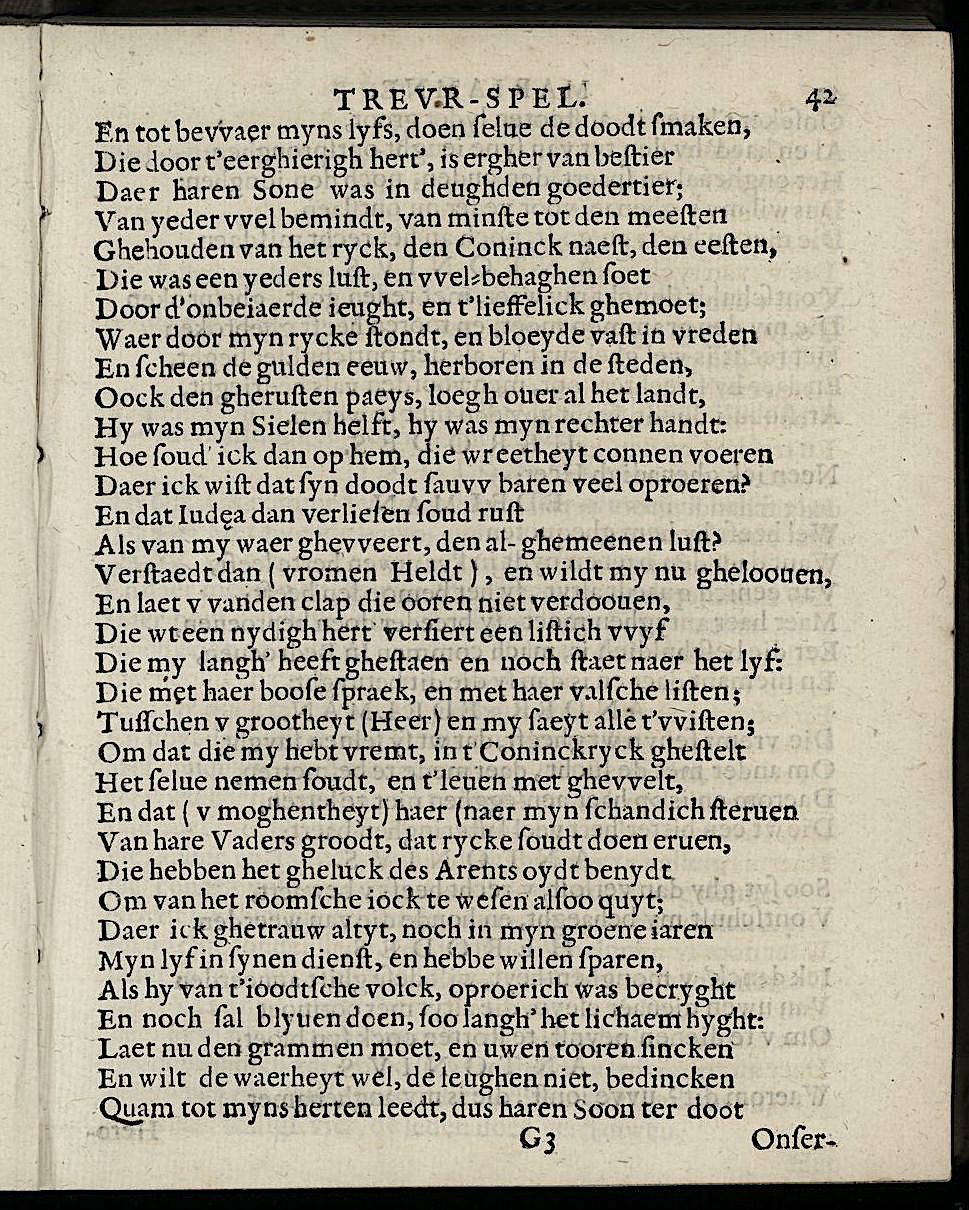 TREVR-SPEL. 42
En tot bevvaer myns lyfs, doen ſelue de doodt ſmaken,
Die door t'eerghierigh hert', is ergher van beſtier
Daer haren Sone was in deughden goedertier;
Van yeder vvel bemindt, van minſte tot den meeſten
Ghehouden van het ryck, den Coninck naeſt, den eeſten,
Die was een yeders luſt, en vvel-behaghen ſoet
Door d'onbeiaerde ieught, en t'lieffelick ghemoet;
Waer door myn rycke ſtondt, en bloeyde vaſt in vreden
En ſcheen de gulden eeuw, herboren in de ſteden,
Oock den gheruſten paeys, loegh ouer al het landt,
Hy was myn Sielen helft, hy was myn rechter handt:
Hoe ſoud' ick dan op hem, die wreetheyt connen voeren
Daer ick wiſt dat ſyn doodt ſauvv baren veel oproeren?
En dat Iudęa dan verlieſen ſoud ruſt
Als van my waer ghevveert, den al-ghemeenen luſt?
Verſtaedt dan ( vromen Heldt ), en wildt my nu gheloouen,
En laet v vanden clap die ooren niet verdoouen,
Die wt een nydigh hert verſiert een liſtich vvyf
Die my langh' heeft gheſtaen en noch ſtaet naer het lyf:
Die met haer booſe ſpraek, en met haer valſche liſten;
Tuſſchen v grootheyt (Heer) en my ſaeyt alle t'vviſten;
Om dat die my hebt vremt, in t'Coninckryck gheſtelt
Het ſelue nemen ſoudt, en t'leuen met ghevvelt,
En dat ( v moghentheyt) haer (naer myn ſchandich ſteruen
Van hare Vaders groodt, dat rycke ſoudt doen eruen,
Die hebben het gheluck des Arents oydt benydt
Om van het roomſche iock te weſen alſoo quyt;
Daer ick ghetrauw altyt, noch in myn groene iaren
Myn lyf in ſynen dienſt, en hebbe willen ſparen,
Als hy van t'ioodtſche volck, oproerich was becryght
En noch ſal blyuen doen, ſoo langh' het lichaem hyght:
Laet nu den grammen moet, en uwen tooren ſincken
En wilt de waerheyt wel, de leughen niet, bedincken
Quam tot myns herten leedt, dus haren Soon ter doot
G3 Onſer-